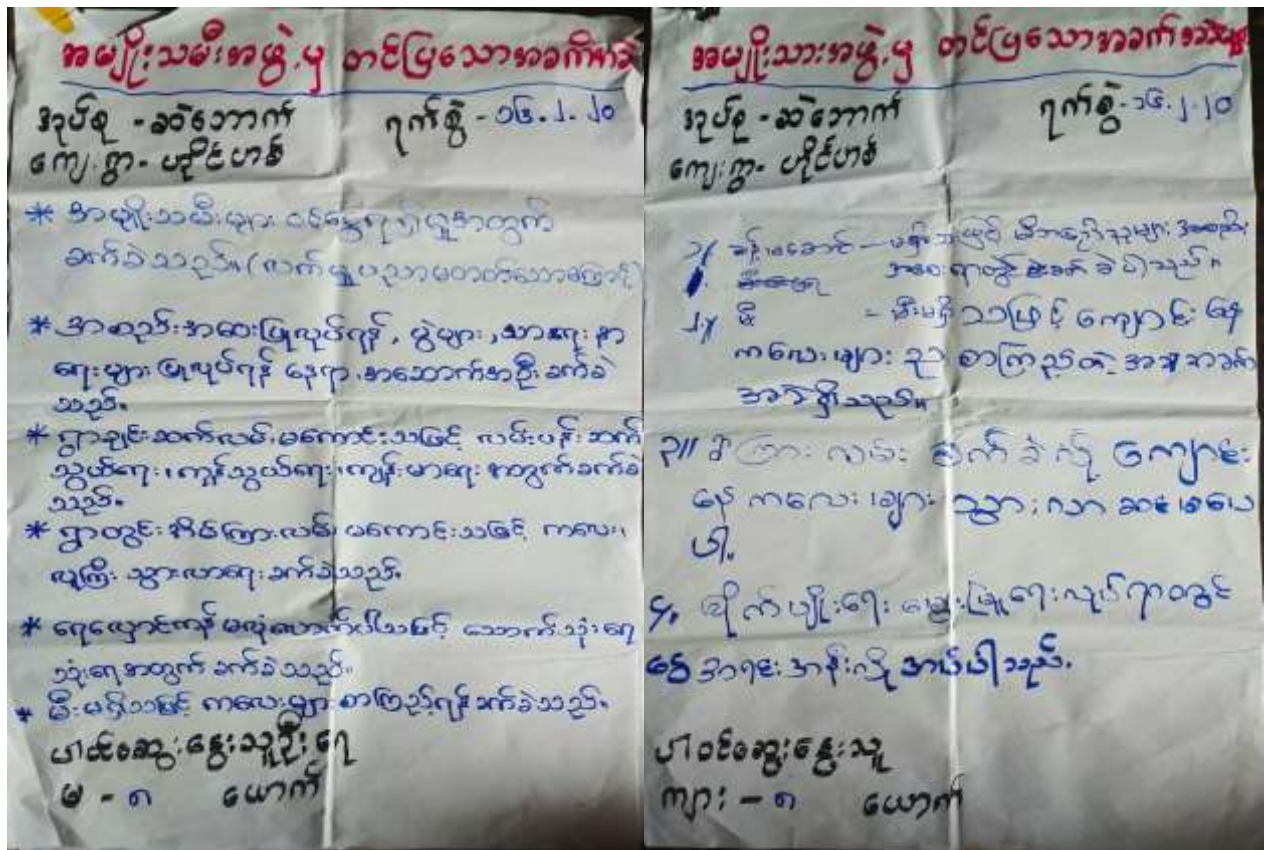 အမျိုးသမီးအဖွဲ့မှ တင်ပြသောအခက်အခဲ
အုပ်စု - ဆဲဘောက် ရက်စွဲ - ၁၆.၂.၂၀
ကျေးရွာ - ဟိုင်ဟစ်
* အမျိုးသမီးများ ဝင်ငွေရရှိမှုအတွက်
ခက်ခဲသည်။ (လက်မှုပညာမတတ်သောကြောင့်)
* အစည်းအဝေးပြုလုပ်ရန်, ပွဲများ, သာရေး နာ
ရေးများ ပြုလုပ်ရန် နေရာ, အဆောက်အဦး ခက်ခဲ
သည်။
* ရွာချင်းဆက်လမ်း မကောင်းသဖြင့် လမ်းပန်းဆက်
သွယ်ရေး၊ ကုန်သွယ်ရေး၊ ကျန်းမာရေး အတွက်ခက်ခဲ
သည်။
* ရွာတွင်း အိမ်ကြားလမ်း မကောင်းသဖြင့် ကလေး၊
လူကြီး သွားလာရေး ခက်ခဲသည်။
* ရေလှောင်ကန် မလုံလောက်ပါသဖြင့် သောက်သုံးရေ
သုံးရေအတွက် ခက်ခဲသည်။
* မီးမရှိသဖြင့် ကလေးများ စာကြည့်ရန် ခက်ခဲသည်။
ပါဝင်ဆွေးနွေးသူဦးရေ
မ - ၈ ယောက်
အမျိုးသားအဖွဲ့မှ တင်ပြသောအခက်အခဲများ
အုပ်စု - ဆဲဘောက် ရက်စွဲ - ၁၆.၂.၂၀
ကျေးရွာ - ဟိုင်ဟစ်
၁/ ခန်းမဆောင် - မရှိသဖြင့် အစည်း
အဝေးရာတွင် ခက်ခဲပါသည်။
၂/ မီး - မီးမရှိသဖြင့် ကျောင်းနေ
ကလေးများ ည စာကြည့်တဲ့အခါ အခက်
အခဲရှိသည်။
၃// ကြားလမ်း ခက်ခဲလို့ ကျောင်း
နေ ကလေးများ သွားလာ
ပါ။
၄. စိုက်ပျိုးရေး မွေးမြူရေးလုပ်ရာတွင်
ငွေအရင်းအနှီးလို အပ်ပါသည်။
ပါဝင်ဆွေးနွေးသူ
ကျား - ၈ ယောက်